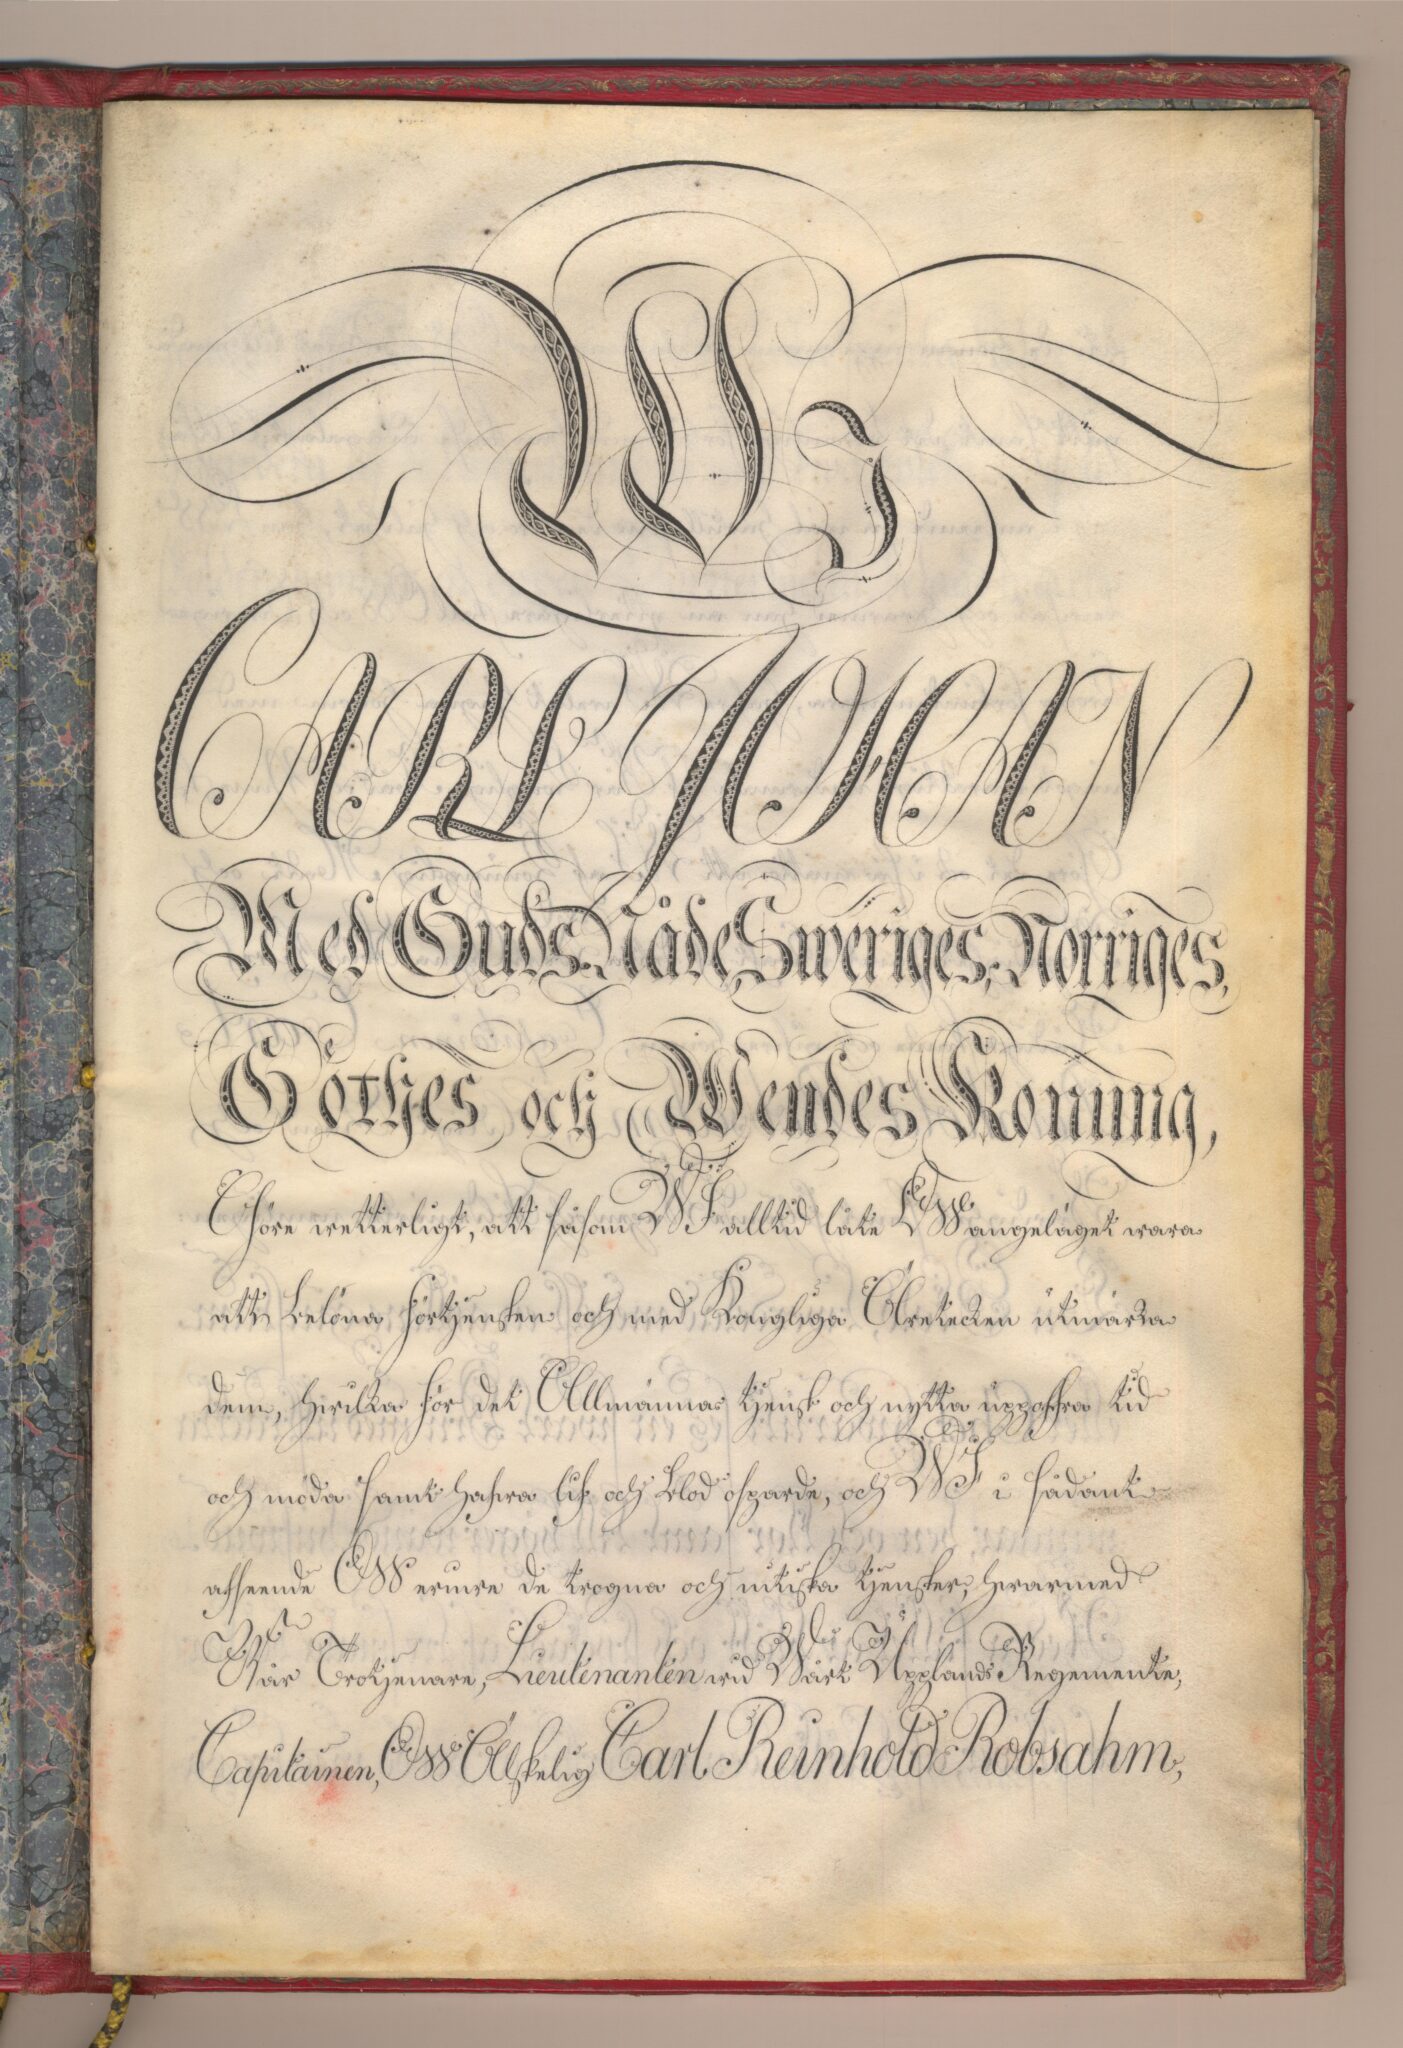 Wi
CARL JOHAN
Med Guds Nåde, Sweriges, Norriges,
Göthes och Wendes Konung,
Göre wetterligt, att såsom WI alltid låte OSS angeläget wara
att belöna förtjensten och med Kongliga Äretecken utmärka
dem, hwilka för det Allmännas tjenst och nytta uppoffra tid
och möda samt hafwa lif och blod osparde, och WI i sådant
afseende OSS erinre de trogna och nitiska tjenster, hwarmed
Wår Trotjenare, Lieutenanten wid Wårt Upplands Regemente,
Capitainen, OSS Älskelig Carl Reinhold Robsahm,